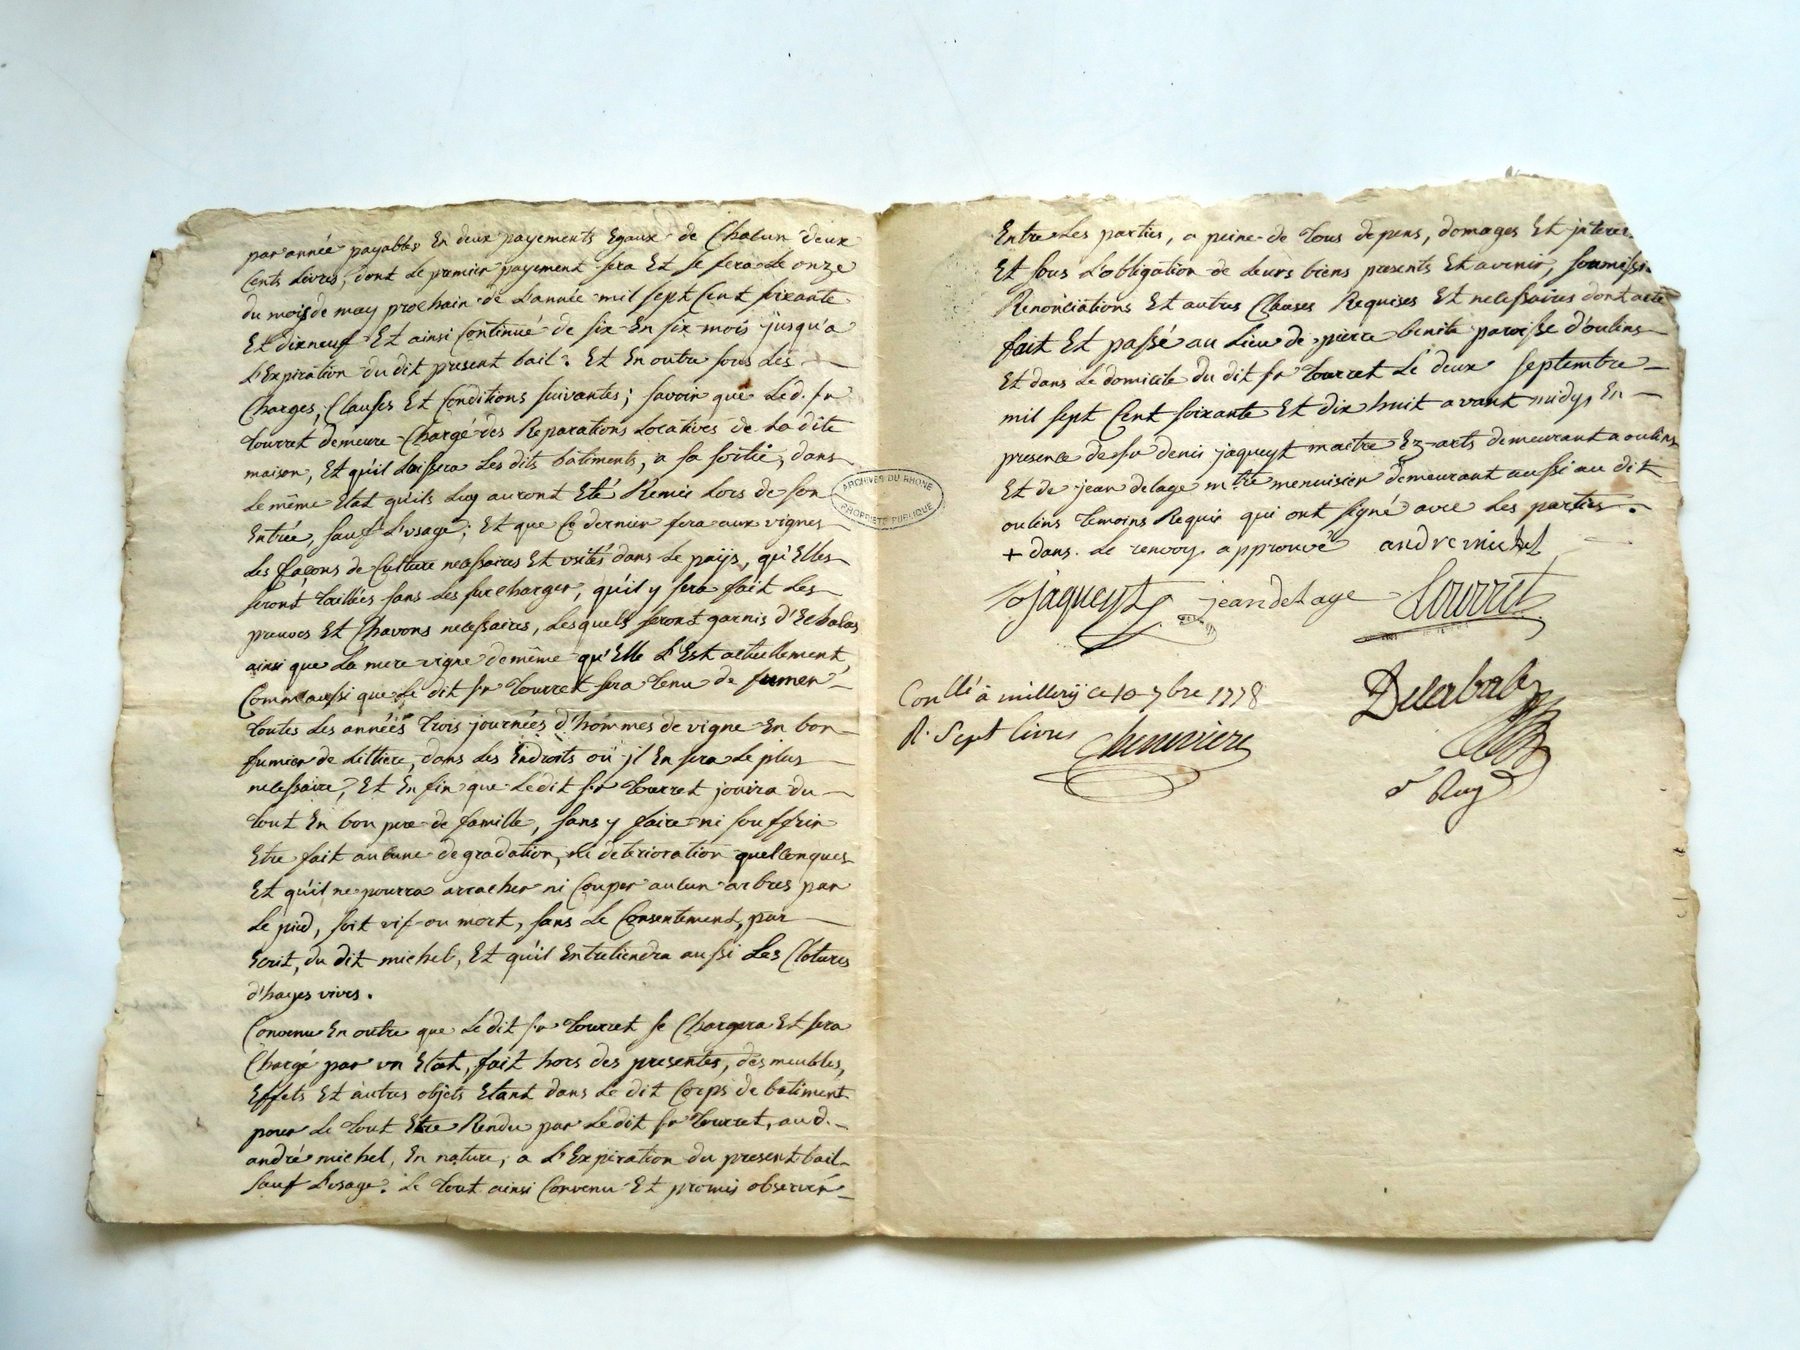 par année payables En deux payements Egaux de Chacun deux
Cents Livres, dont Le premier payement sera Et se fera Le onze
du mois de may prochain de L'année mil sept Cent soixante
Et dixneuf Et ainsi Continué de six En six mois jusqu'a
L'Expiration du dit present bail. Et En outre sous Les
Charges, Clauses Et Conditions suivantes; savoir que Led. sr
tourret demeure Chargé des Reparations Locatives de La dite
maison, Et qu'il Laissera Les dits bâtiments, a sa sortie, dans
Le même Etat qu'ils Luy auront Eté Remis Lors de son
Entrée, sauf L'usage; Et que Ce dernier fera aux vignes
Les façons de Culture necessaires Et usités dans Le païs, qu'Elles
seront taillées sans Les surcharger, qu'il y sera fait Les
preuves Et Chavons necessaires, Lesquels seront garnis d'Echalas
ainsi que La mere vigne de même qu'Elle L'Est actuellement,
Comme aussi que Le dit sr tourret sera tenu de fumer
toutes Les années trois journées d'hommes de vigne En bon
fumier de Littiere, dans Les Endroits où jl En sera Le plus
necessaire, Et En fin que Ledit sr tourret jouira du
tout En bon pere de famille, sans y faire ni souffrir
Etre fait aucune degradation, ni deterioration quelconques
Et qu'il ne pourra arracher ni Couper aucun arbres par
Le pied, soit vif ou mort, sans Le Consentement, par
Ecrit, du dit michel, Et qu'il Entretiendra aussi Les Clotures
d'hayes vives.
Convenu En outre que Le dit sr tourret se Chargera Et sera
Chargé par un Etat, fait hors des presentes, des meubles,
Effets Et autres objets Etant dans Le dit Corps de batiment
pour Le tout Etre Rendu par Le dit sr tourret, aud.
andré michel, En nature, a L'Expiration du present bail
sauf L'usage. Le tout ainsi Convenu Et promis observer
ARCHIVES DU RHONE
PROPRIÉTÉ PUBLIQUE
Entre Les parties, a peine de tous depens, domages Et jnteres
Et sous L'obligation de Leurs biens presents Et avenir, soumissi
Renonciations Et autres Clauses Requises Et necessaires dont acte
fait Et passé au Lieu de pierre benite paroisse d'oulins
Et dans Le domicile du dit sr tourret Le deux septembre
mil sept Cent soixante Et dix huit avant midy, En
presence de sr denis jaqueyt maitre Ez-arts demeurant a oulins
Et de jean delage mtre menuisier demeurant aussi au dit
oulins temoins Requis qui ont signé avec Les parties.
+ dans Le renvoy approuvé andre michel
jaqueyt jean delage tourret
Conllé à millery ce 10 7bre 1778
R. Sept livres